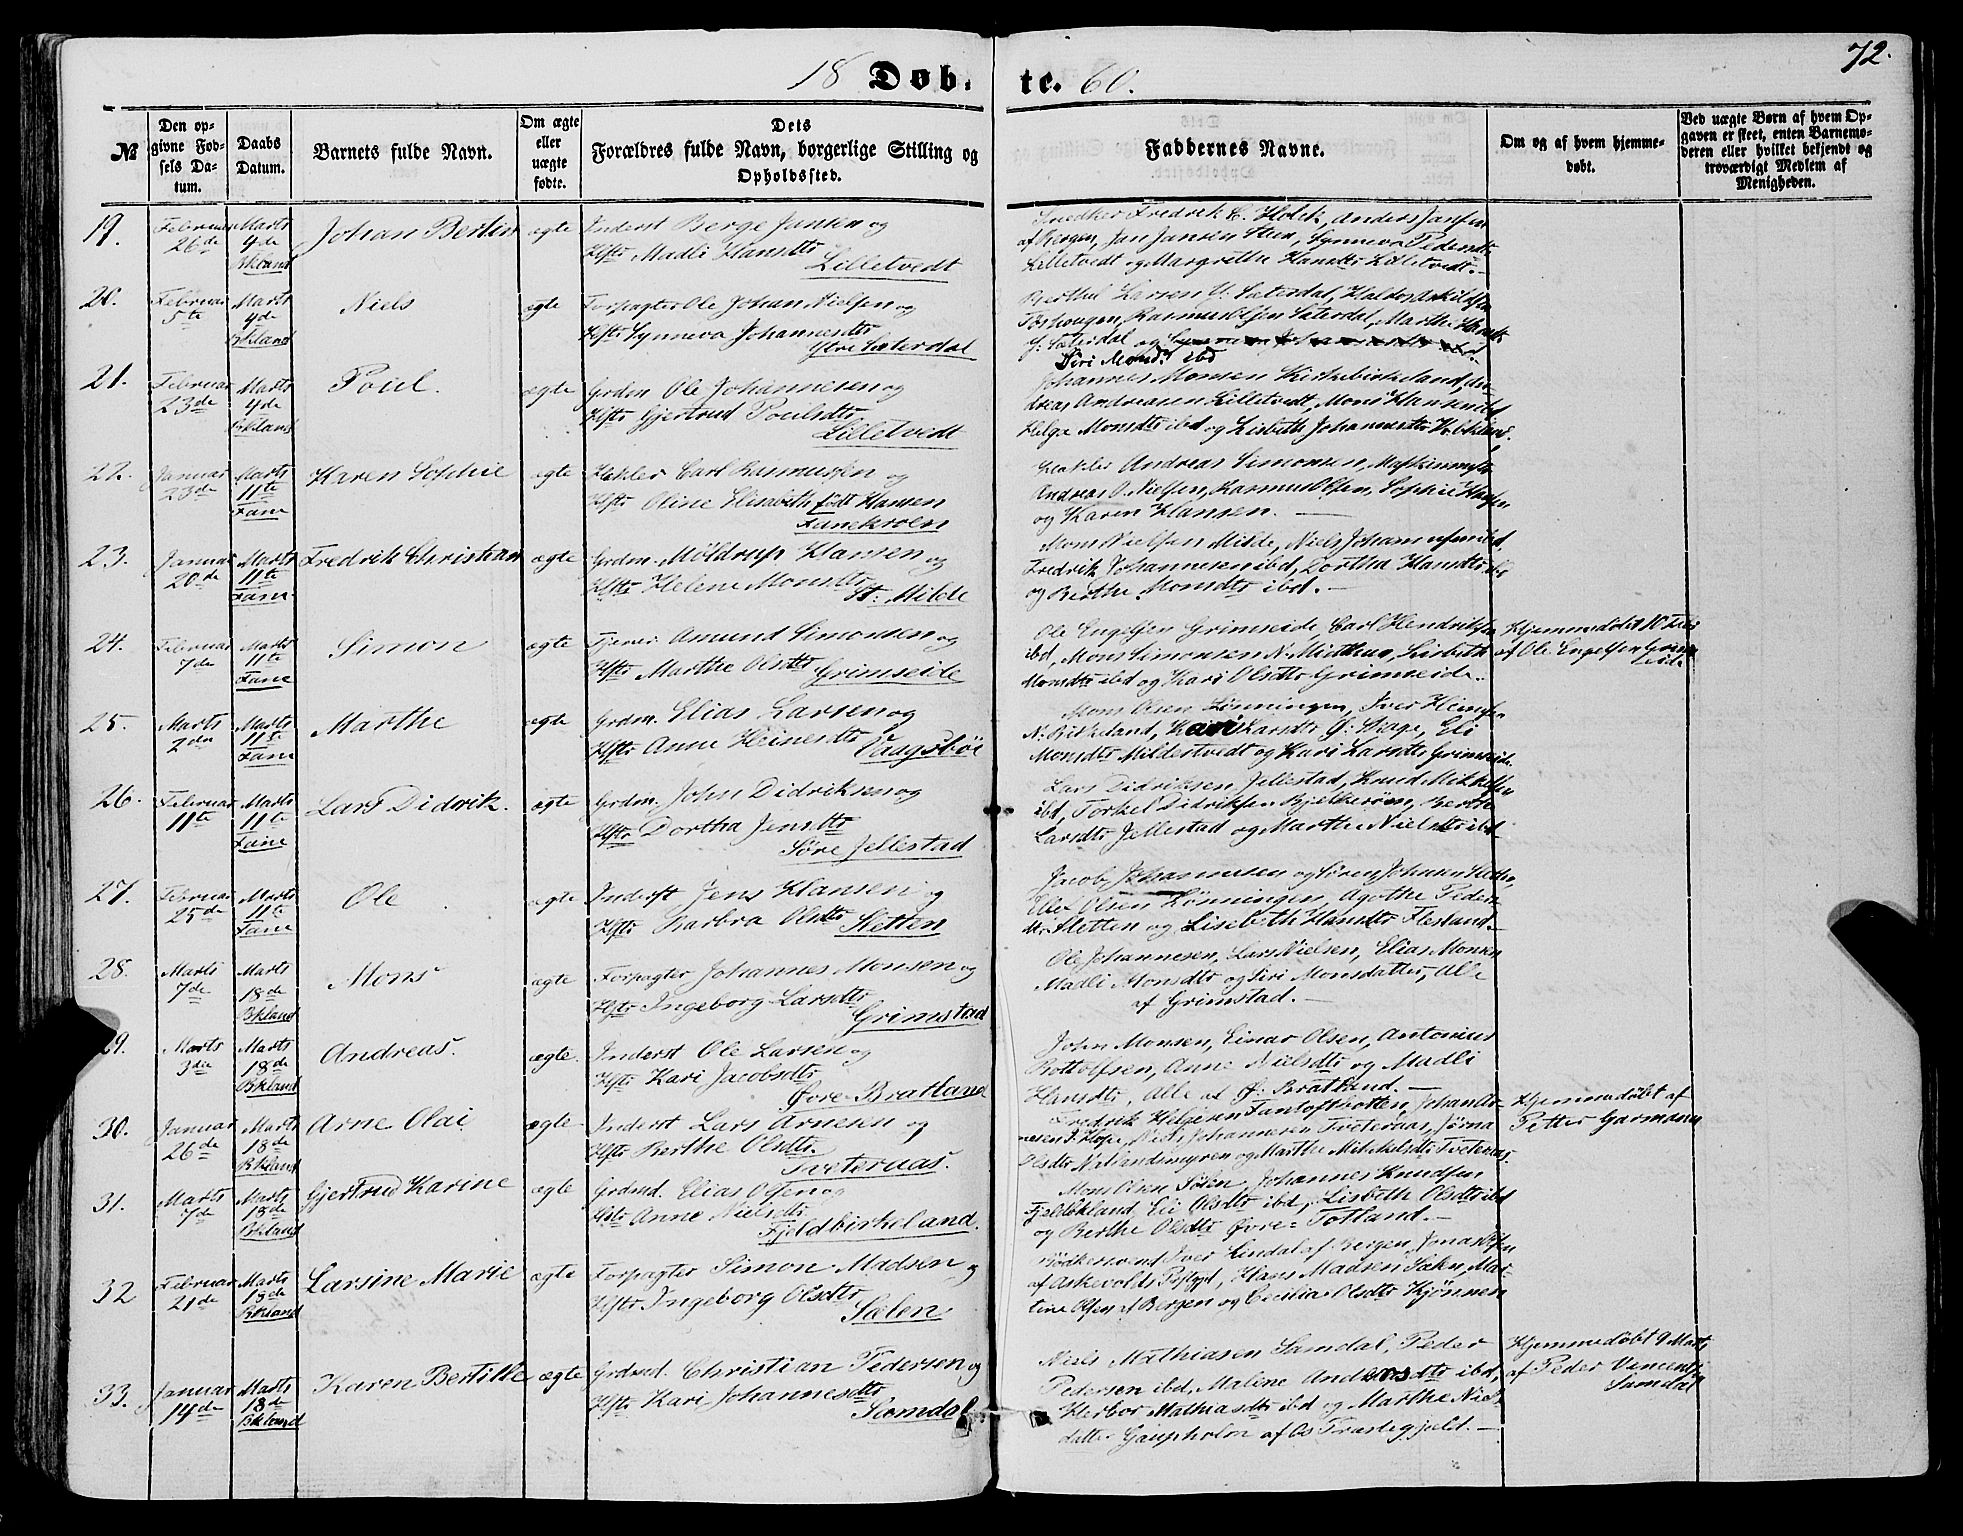 72.
18 Døb. te. 60.
№
Den opgivne Fødsels Datum.
Daabs Datum.
Barnets fulde Navn.
Om ægte eller uægte fødte.
Dets Forældres fulde Navn, borgerlige Stilling og Opholdssted.
Faddernes Navne.
Om og af hvem hjemmedøbt.
Ved uægte Børn af hvem Opgaven er skeet, enten Barnemoderen eller hvilket bekjendt og troværdigt Medlem af Menigheden.
19. Februar 26de Marts 4de Bkland Johan Bertin ægte Inderst Berge Jansen og
Hstr Madli Hansdtr
Lilletvedt
Snedker Fredrik C. Holck, Anders Jansen
af Bergen, Jan Jansen Steen, Synneva Pedersdtr
Lilletvedt og Margrethe Hansdtr Lilletvedt.
20. Februar 5te Marts 4de Bkland Niels ægte Forpagter Ole Johan Nielsen og
Hstr Synneva Johannesdtr
Ytre Sæterdal
Berthel Larsen Y: Sæterdal, Haldor Askildsen
Toshougen, Rasmus Olsen Sæterdal, Marthe
Y: Sæterdal og
Siri Monsd. ibd
21. Februar 23de Marts 4de Bkland Poul. ægte Grdm. Ole Johannesen og
Hstr Gjertrud Poulsdtr
Lilletvedt
Johannes Monsen Kirkebirkeland, An-
dreas Andreasen Lilletvedt, Mons Hansen ibd
Helga Monsdtr ibd og Lisbeth Johannesdtr Kbkland.
22. Januar 23de Marts 11te Fane Karen Sophie ægte Hekler Carl Rasmussen og
Hstr Oline Elisabeth født Hansen
Fanekroen
Hekler Andreas Simonsen, Maskinmstr
Andreas O. Nielsen, Rasmus Olsen, Sophie Hansen
og Karen Hansen.
23. Januar 20de Marts 11te Fane Fredrik Christian ægte Grdm. Møldrup Hansen og
Hstr Helene Monsdtr
St: Milde
Mons Nielsen Milde, Niels Johannesen ibd,
Fredrik Johannesen ibd, Dortha Hansdtr ibd
og Berthe Monsdtr ibd.
24. Februar 7de Marts 11te Fane Simon ægte Amund Simonsen og
Hstr Marthe Olsdtr Grimseide
Ole Engelsen Grimseide, Carl Hendriksen
ibd, Mons Simonsen N. Midthun, Lisbeth
Monsdtr ibd og Kari Olsdtr Grimseide.
Hjemmedøbt 10 Febr
af Ole Engelsen Grim-
seide
25. Marts 2den Marts 11te Fane Marthe ægte Grdm. Elias Larsen og
Hstr Anne Heinesdtr Vaagsbøe
Mons Olsen Lønningen, Iver Heinesen
N: Birkeland, Kari Larsdtr Ø: Berge, Eli
Monsdtr Mildestvedt og Kari Larsdtr Grimseide.
26. Februar 11te Marts 11te Fane Lars Didrik. ægte Grdm. John Didriksen og
Hstr Dortha Jensdtr
Søre Jellestad
Lars Didriksen Jellestad, Knud Mikkelsen
ibd, Torkel Didriksen Bjelkerøen, Berthe
Larsdtr Jellestad og Marthe Nielsdtr ibd
27. Februar 25de Marts 11te Fane Ole ægte Inderst Jens Hansen og
Hstr Barbra Olsdtr Sletten
Jacob Johannesen og Søren Johnsen
Olsen Lønningen, Agothe Peders-
dtr Sletten og Lisebeth Hansdtr Flesland.
28. Marts 7de Marts 18de Bkland Mons ægte Forpagter Johannes Monsen og
Hstr Ingeborg Larsdtr
Grimstad
Ole Johannesen, Lars Nielsen, Elias Monsen
Madli Monsdtr og Siri Monsdatter, Alle
af Grimstad.
29. Marts 3die Marts 18de Bkland Andreas. ægte Inderst Ole Larsen og
Hstr Kari Jacobsdtr
Øvre-Bratland
John Monsen, Einar Olsen, Antonius
Bottolfsen, Anne Nielsdtr og Madli
Hansdtr, Alle af Ø: Bratland.
30. Januar 26de Marts 18de Bkland Arne Olai ægte Inderst Lars Arnesen og
Hstr Berthe Olsdtr.
Tveternas.
Fredrik Helgesen Fantoftbotten, Johan
nesen S. Hope, Niels Johannesen Tveteraas, Jørna
Olsdtr Natlandsmyren og Marthe Mikkelsdtr Tveteraas.
Hjemmedøbt af
Petter Garmann
31. Marts 7de Marts 18de Bkland Gjertrud Karine ægte Grdsd. Elias Olsen og
Hstr Anne Nielsdtr
Fjeldbirkeland.
Mons Olsen Sølen, Johannes Knudsen
Fjeldbkland, Eli Olsdtr ibd, Lisbeth Olsdtr ibd
og Berthe Olsdtr Øvre-Totland.
32 Februar 21de Marts 18de Bkland Larsine Marie ægte Forpagter Simon Madsen og
Hstr Ingeborg Olsdtr
Sælen
Bødkersvend Iver Lindal af Bergen, Jonas Olsen
af Askevolds Præstgjd, Hans Madsen Sælen, Mar-
tine Olsen af Bergen og Cecilia Olsdtr Kjønnen
33. Januar 14de Marts 18de Bkland Karen Bertille ægte Grdsd. Christian Pedersen og
Hstr Kari Johannesdtr
Samdal
Niels Mathiasen Samdal, Peder
Pedersen ibd, Malene Andersdtr ibd,
Herbor Mathiasdtr ibd og Marthe Niels-
datter Gaupholm af Os Præstegjeld.
Hjemmedøbt 9 Marts
af Peder Vincents
Samdal